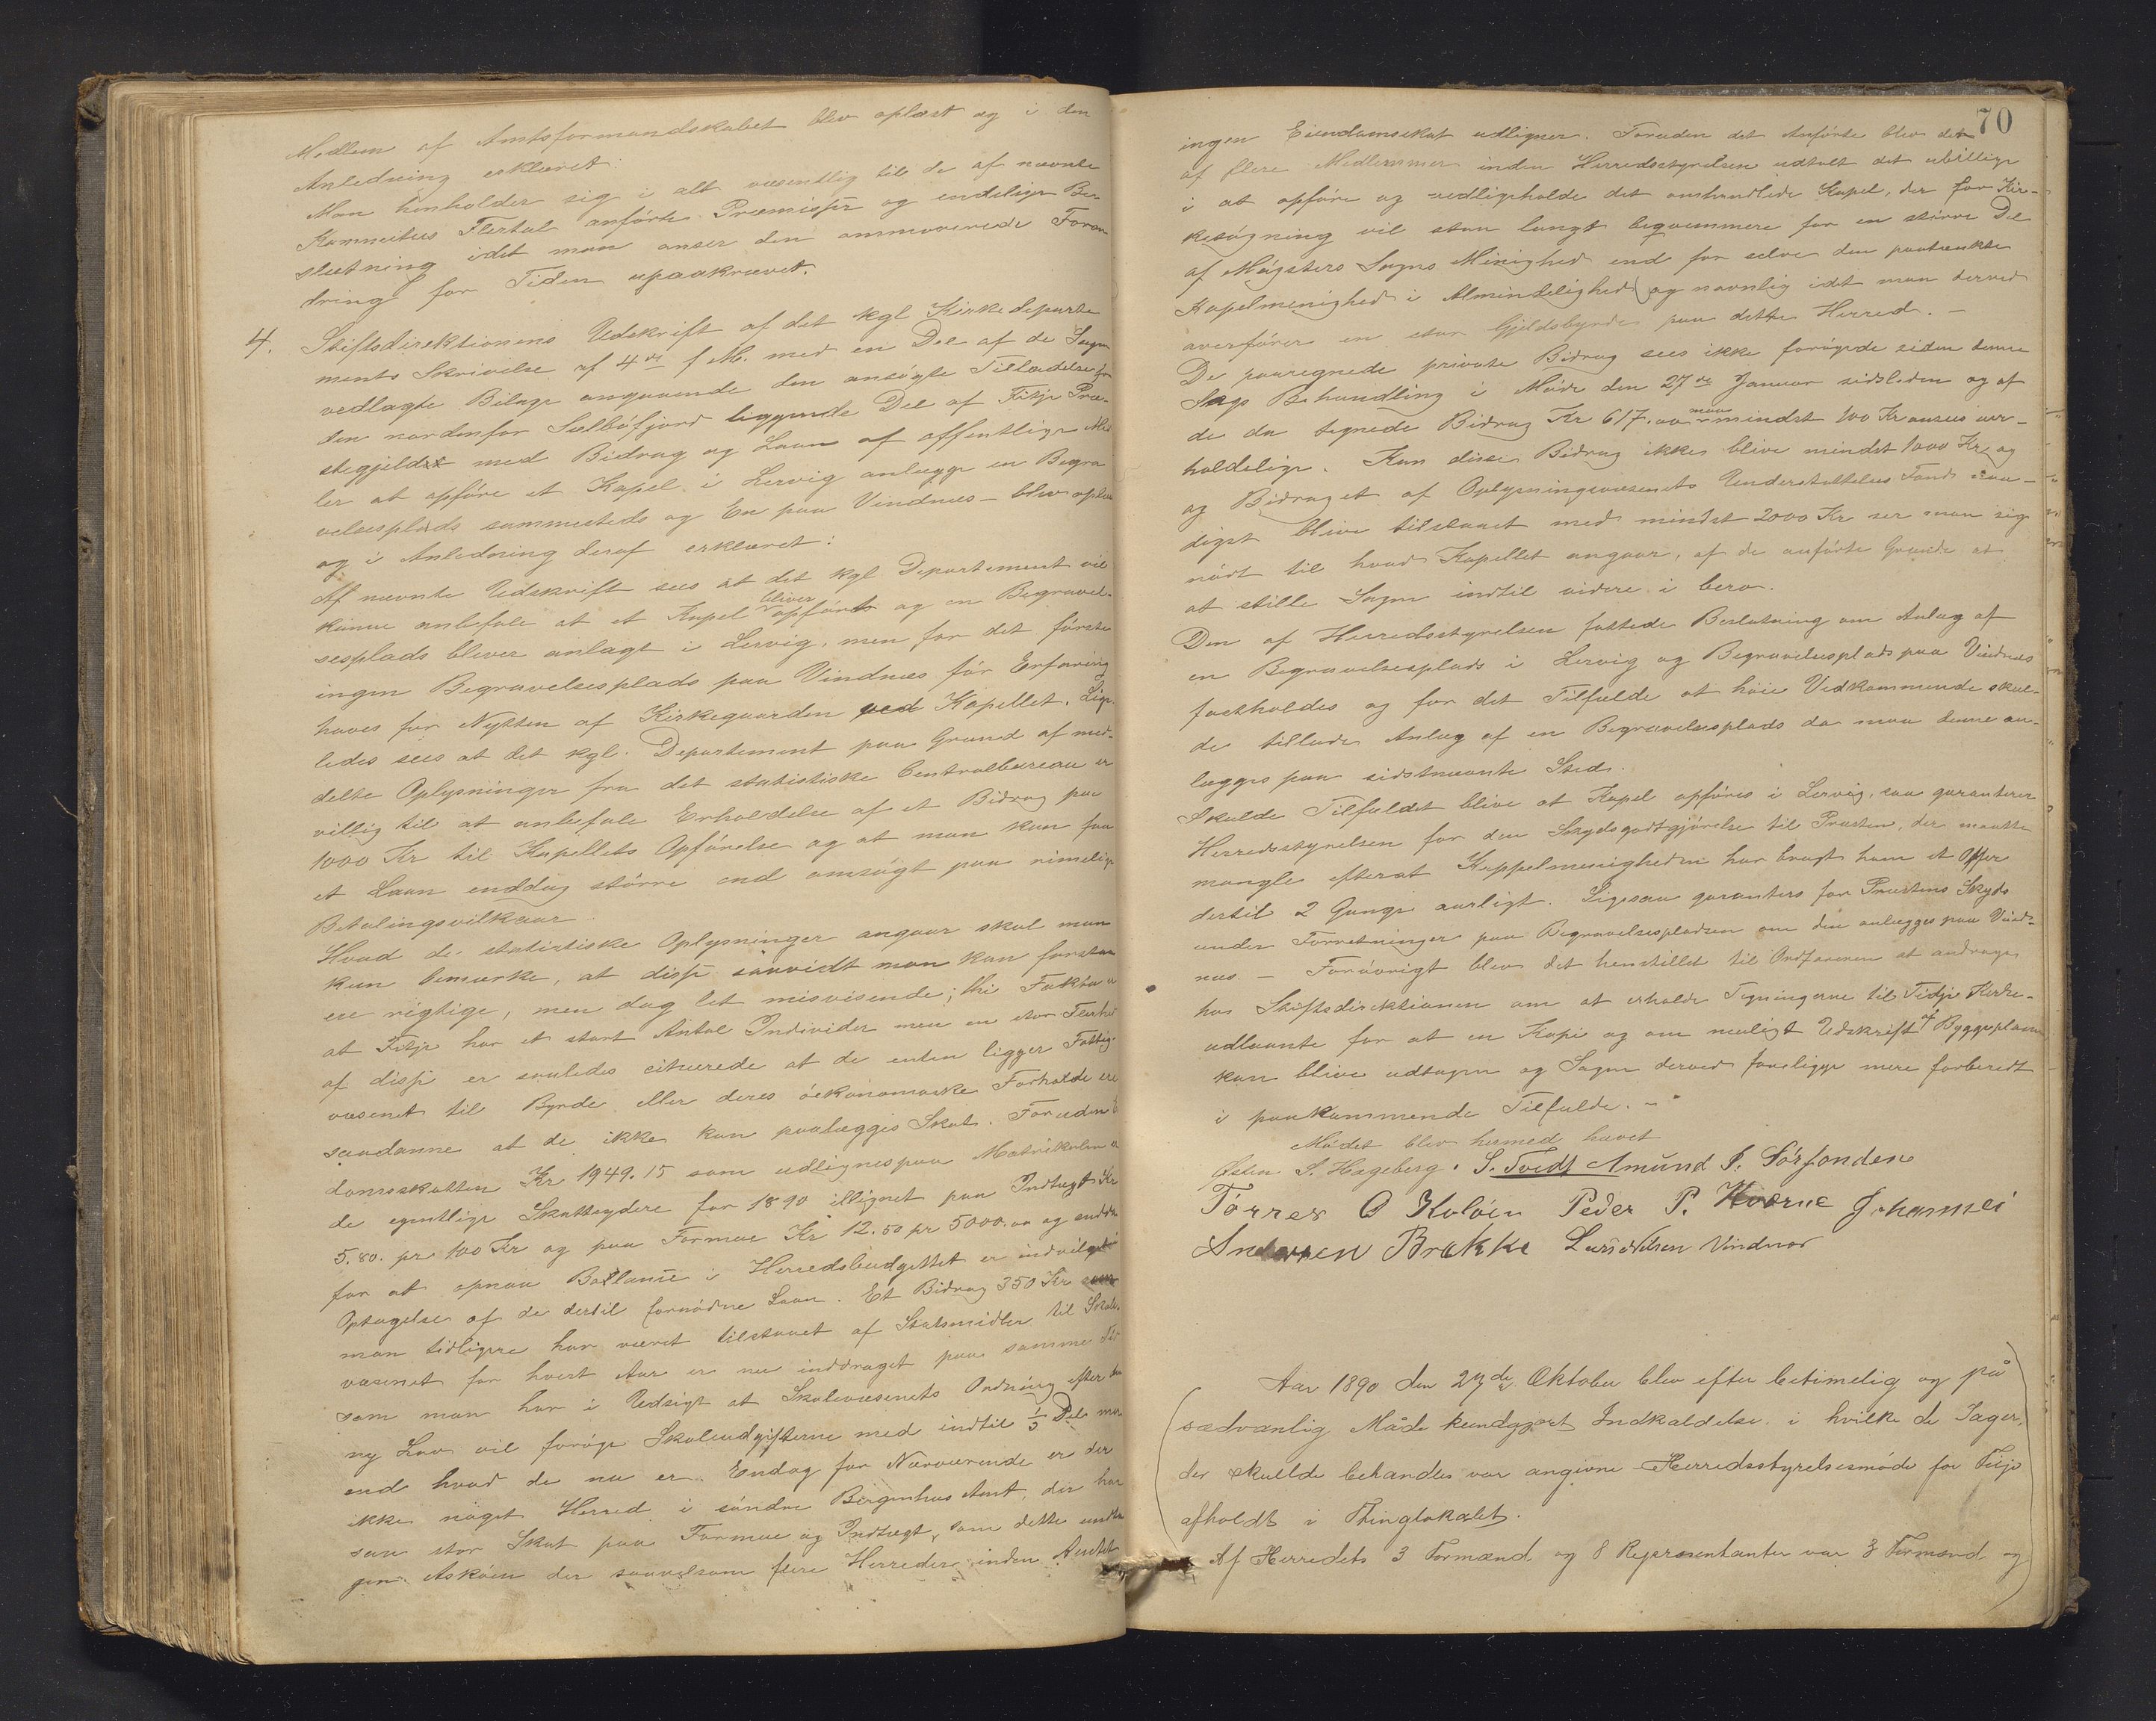 Medlem af Amtsformandskabet blev oplæst og i den
Anledning erklæret:
Man henholder sig i alt væsentlig til de af nævnte
Kommitees Flertal anførte Præmisser og endelige Be-
slutning idet man anser den ommoverede Foran
dring for Tiden upaakrævet.
4. Stiftsdirektionens Udskrift af det kgl Kirkedeparte
ments Skrivelse af 4de f M. med en Del af de Sagen
vedlagte Bilage angaaende den ansøgte Tilladelse for
den nordenfor Selbøfjord liggende Del af Fitje Præ-
stegjeldet med Bidrag og Laan af offentlige Mid
ler at opføre et Kapel i Lervig anlægge en Begra
velsesplads sammesteds og En paa Vindnæs - blev oplæst
og i Anledning deraf erklæret:
Af nævnte Udskrift sees at det kgl Departement vil
kunne anbefale at et Kapel bliver opført og en Begravel-
sesplads bliver anlagt i Lervig, men for det første
ingen Begravelsesplads paa Vindnæs før Erfaring
haves for Nytten af Kirkegaarden ved Kapellet. Lige
ledes sees at det kgl. Departement paa Grund af med-
delte Oplysninger fra det statistiske Centralbureau er
villig til at anbefale Erholdelse af et Bidrag paa
1000 Kr til Kapellets Opførelse og at man kan faa
et Laan enddog større end ansøgt paa rimelige
Betalingsvilkaar
Hvad de statistiske Oplysninger angaar skal man
kun bemærke, at disse saavidt man kan forstaa
ere rigtige, men dog let misvisende; thi Fakta er
at Fitje har et stort Antal Individer men en stor Flertal
af disse er saaledes situerede at de enten ligger Fattig-
væsenet til Byrde eller deres øekonomiske Forholde ere
saadanne at de ikke kan paalægges Skat. Foruden
domsskatten Kr 1949.15 som udlignes paa Matrikulen er
de egentlige Skatteydere for 1890 illignet paa Indtægt Kr
5.80. pr 100 Kr og paa Formue Kr 12.50 pr 5000.00 og endda
for at opnaa Ballance i Herredsbudgettet er indvilget i
Optagelse af de dertil fornødne Laan. Et Bidrag 350 Kr som
man tidligere har været tilstaaet af Statsmidler til Skole-
væsenet for hvert Aar er nu inddraget paa samme Tid
som man har i Udsigt at Skolevæsenets Ordning efter den
ny Lov vil forøge Skoleudgifterne med indtil 1/3 Del mere
end hvad de nu er. Endog for Nærværende er der
ikke noget Herred i søndre Bergenhus Amt, der har
saa stor Skat paa Formue og Indtægt, som dette undta
gen Askøen der saavelsom flere Herreder inden Amtet
70
ingen Eiendomsskat udligner. Foruden det Anførte blev det
af flere Medlemmer inden Herredsstyrelsen udtalt det ubillige
i at opføre og vedligeholde det omhandlede Kapel, der for Kir-
kesøgning vil staa langt beqvemmere for en større Del
af Møgsters Sogns Menighed end for selve den paatænkte
Kapelmenighed i Almindelighed og navnlig idet man derved
overfører en stor Gjeldsbyrde paa dette Herred. -
De paaregnede private Bidrag sees ikke forøgede siden denne
Sags Behandling i Møde den 27de Januar sidstleden og af
de da tegnede Bidrag Kr 617.00 maa mindst 100 Kr ansees uer-
holdelige. Kan disse Bidrag ikke blive mindst 1000 Kr, og
og Bidraget af Oplysningsvæsenets Understøttelses Fond saa-
digt blive tilstaaet med mindst 2000 Kr ser man sig
nødt til hvad Kapellet angaar, af de anførte Grunde at
at stille Sagen indtil videre i bero.
Den af Herredsstyrelsen fattede Beslutning om Anlæg af
en Begravelsesplads i Lervig og Begravelsesplads paa Vindnæs
fastholdes og for det Tilfælde at høie Vedkommende skul-
de tillade Anlæg af en Begravelsesplads da maa denne an-
lægges paa sidstnævnte Sted.
Skulde Tilfældet blive at Kapel opføres i Lervig, saa garanterer
Herredsstyrelsen for den Skydsgodtgjørelse til Præsten, der maatte
mangle efterat Kappelmenigheden har bragt ham et Offer
dertil 2 Gange aarligt. Ligesaa garanters for Præstens Skyds
under Forretninger paa Begravelsespladsen om den anlægges paa Vind-
næs. - Forøvrigt blev det henstillet til Ordføreren at andrage
hos Stiftsdirektionen om at erholde Tegningerne til Fidje Kirke
udlaante for at en Kopi og om muligt Udskrift af Byggeplanen
kan blive udtagen og Sagen derved foreligge mere forberedt
i paakommende Tilfælde. -
Mødet blev hermed hævet
Østen S. Hageberg. S. Tvedt Amund I. Sørfonden
Tørres O Koløen Peder P. Hværne Johannes
Andersen Brakke Lars Nilsen Vindnæs
Aar 1890 den 27de Oktober blev efter betimelig og på
sædvanlig Måde kundgjort Indkaldelse i hvilke de Sager,
der skulde behandles var angivne Herredsstyrelsesmøde for Fitje
afholdt i Thinglokalet.
Af Herredets 3 Formænd og 8 Repræsentanter var 3 Formænd og